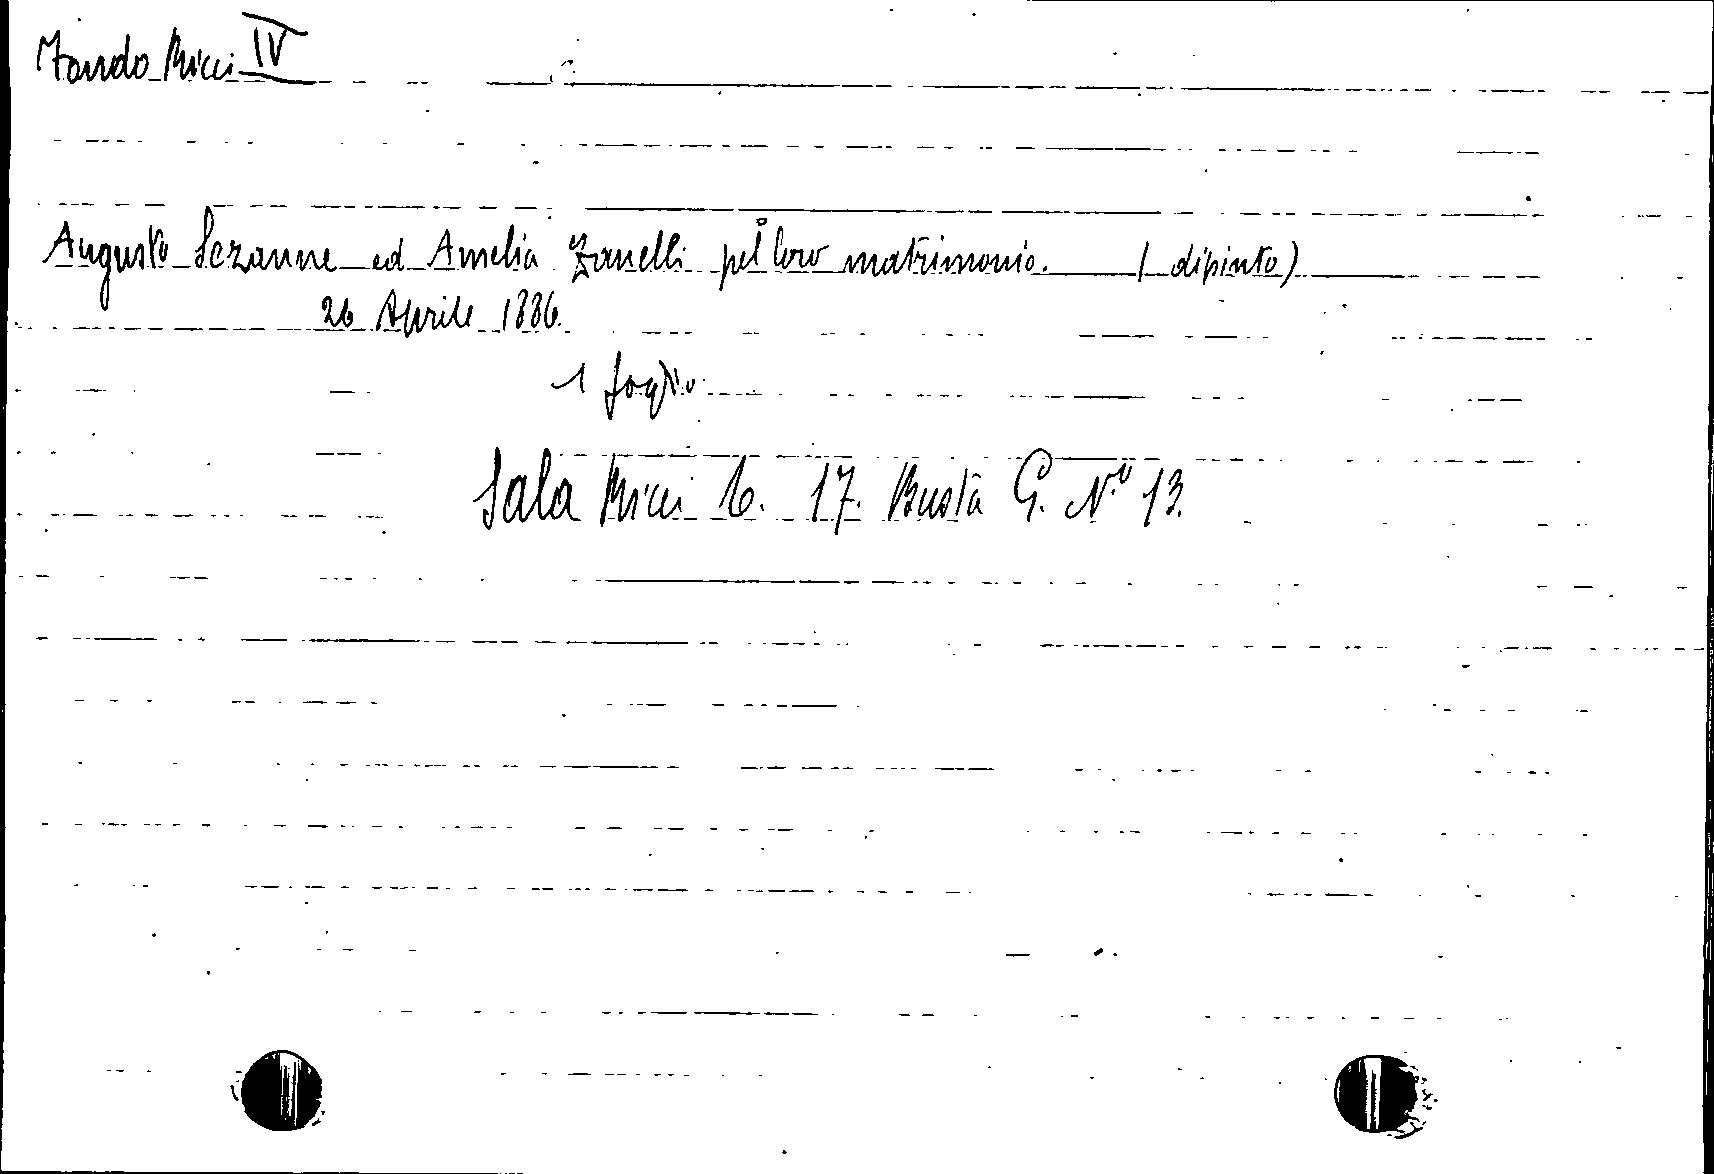 Fondo Ricci IV
Augusto Sezanne ed Amelia Zanelli pel loro matrimonio. (dipinto)
26 Aprile 1886.
1 foglio
Sala Ricci 6. 17. Busta G. N.º 13.